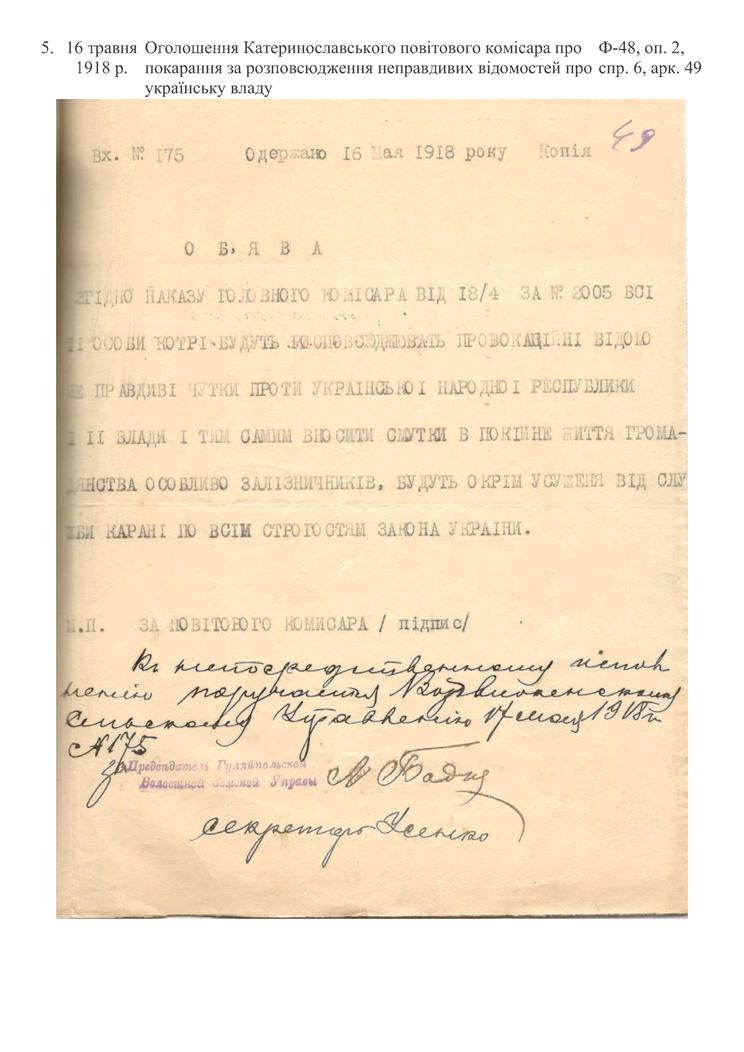 5. 16 травня 1918 р. Оголошення Катеринославського повітового комісара про покарання за розповсюдження неправдивих відомостей про українську владу Ф-48, оп. 2, спр. 6, арк. 49
49
Вх. № 175 Одержано 16 Мая 1918 року Копія
О Б, Я В А
ЗГІДНО НАКАЗУ ГОЛОВНОГО КОМІСАРА ВІД 18/4 ЗА № 2005 ВСІ
ТІ ОСОБИ КОТРІ БУДУТЬ РОСПОВСЮДЖОВАТЬ ПРОВОКАЦІЙНІ ВІДОМО
НЕ ПРАВДИВІ ЧУТКИ ПРОТИ УКРАЇНСЬКОІ НАРОДНОІ РЕСПУБЛИКИ
І ІІ ВЛАДИ І ТИМ САМИМ ВНОСИТИ СМУТКИ В ПОКІЙНЕ ЖИТТЯ ГРОМА-
ДЯНСТВА ОСОБЛИВО ЗАЛІЗНИЧНИКІВ, БУДУТЬ ОКРІМ УСУНЕНЯ ВІД СЛУ
ЖБИ КАРАНІ ПО ВСІМ СТРОГОСТЯМ ЗАКОНА УКРАІНИ.
М.П. ЗА ПОВІТОВОГО КОМИСАРА / підпис/
Къ непосредственному испол
нению поручается
Сельскому Управлению 17 мая 1918 г.
№ 175
за Председатель Гуляйпольской
Волостной Земской Управы
секретарь Усенко